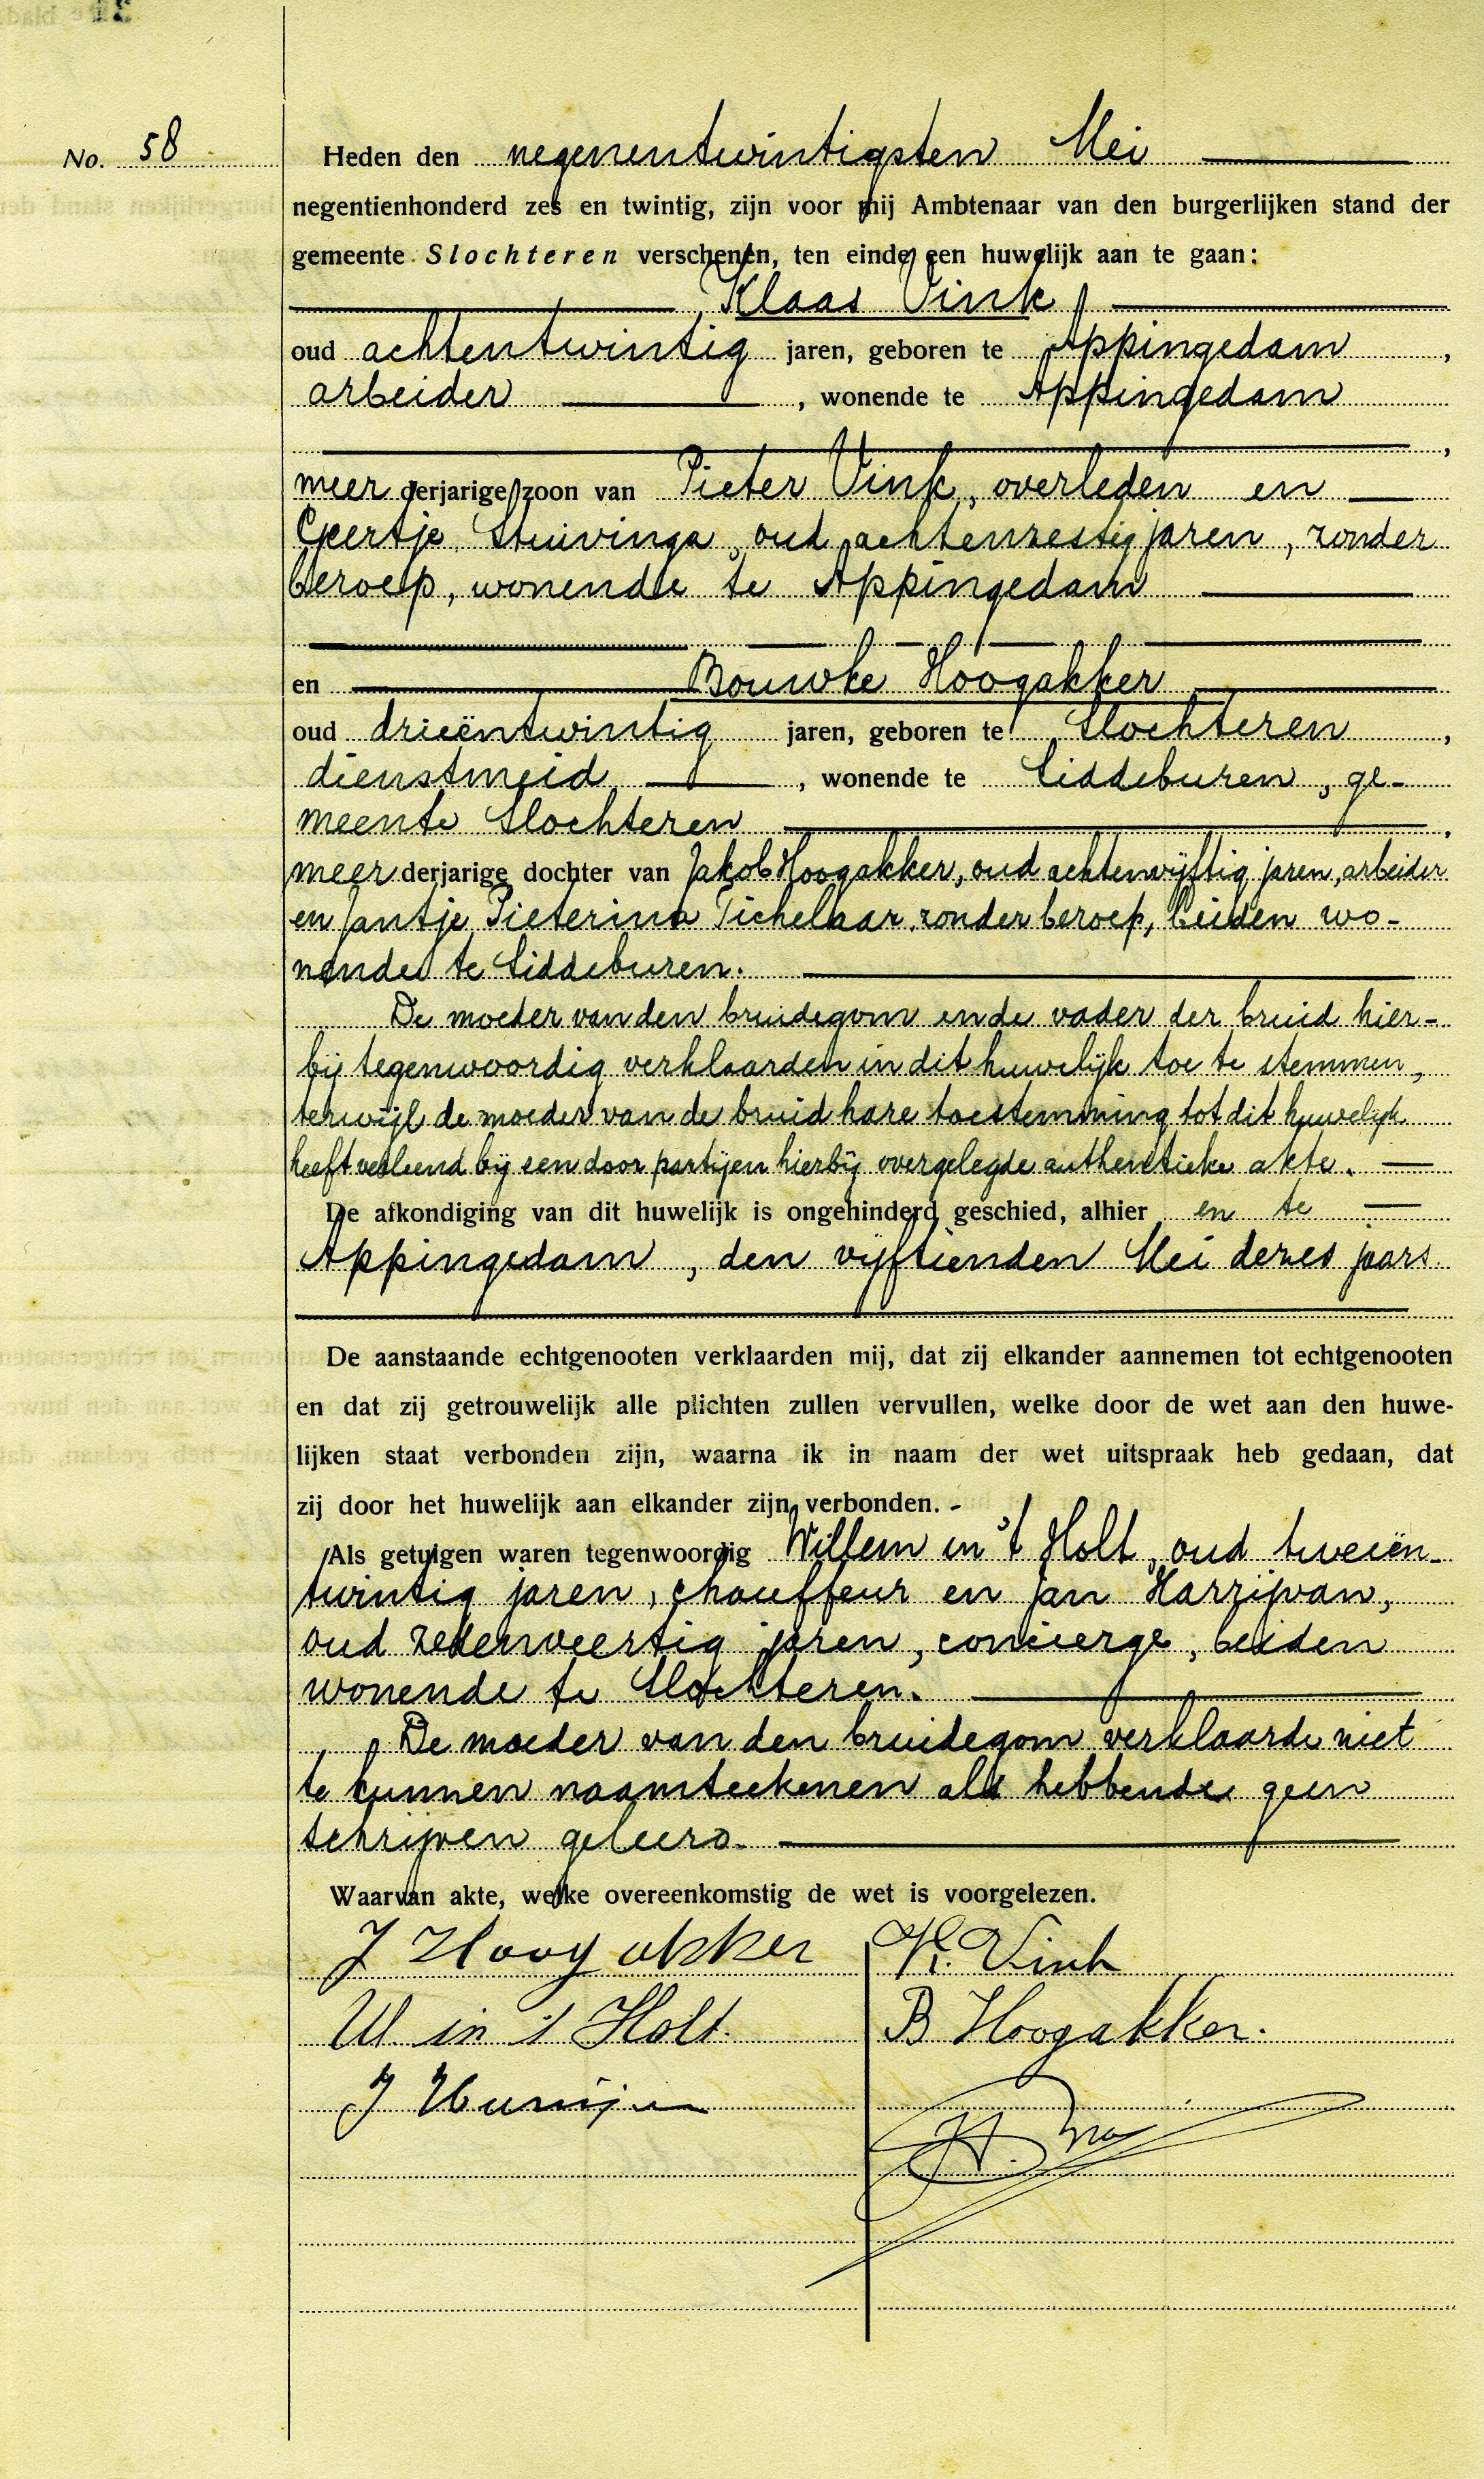 No. 58
Heden den negenentwintigsten Mei
negentienhonderd zes en twintig, zijn voor mij Ambtenaar van den burgerlijken stand der
gemeente Slochteren verschenen, ten einde een huwelijk aan te gaan:
Klaas Vink,
oud achtentwintig jaren, geboren te Appingedam,
arbeider, wonende te Appingedam
,
meerderjarige zoon van Pieter Vink, overleden en
Geertje Stuivinga, oud achtenzestig jaren, zonder
beroep, wonende te Appingedam
en Bouwke Hoogakker
oud drieëntwintig jaren, geboren te Slochteren,
dienstmeid, wonende te Siddeburen, ge-
meente Slochteren,
meerderjarige dochter van Jakob Hoogakker, oud achtenvijftig jaren, arbeider
en Jantje Pieterina Tichelaar, zonder beroep, beiden wo-
nende te Siddeburen.
De moeder van den bruidegom en de vader der bruid hier-
bij tegenwoordig verklaarden in dit huwelijk toe te stemmen,
terwijl de moeder van de bruid hare toestemming tot dit huwelijk
heeft verleend bij een door partijen hierbij overgelegde authentieke akte.
De afkondiging van dit huwelijk is ongehinderd geschied, alhier en te
Appingedam, den vijftienden Mei dezes jaars.
De aanstaande echtgenooten verklaarden mij, dat zij elkander aannemen tot echtgenooten
en dat zij getrouwelijk alle plichten zullen vervullen, welke door de wet aan den huwe-
lijken staat verbonden zijn, waarna ik in naam der wet uitspraak heb gedaan, dat
zij door het huwelijk aan elkander zijn verbonden. -
Als getuigen waren tegenwoordig Willem in 't Holt, oud tweeën-
twintig jaren, chauffeur en Jan Harrijvan,
oud zevenveertig jaren, concierge, beiden
wonende te Slochteren.
De moeder van den bruidegom verklaarde niet
te kunnen naamteekenen als hebbende geen
schrijven geleerd.
Waarvan akte, welke overeenkomstig de wet is voorgelezen.
J Hoogakker K. Vink
W in 't Holt. B Hoogakker.
J